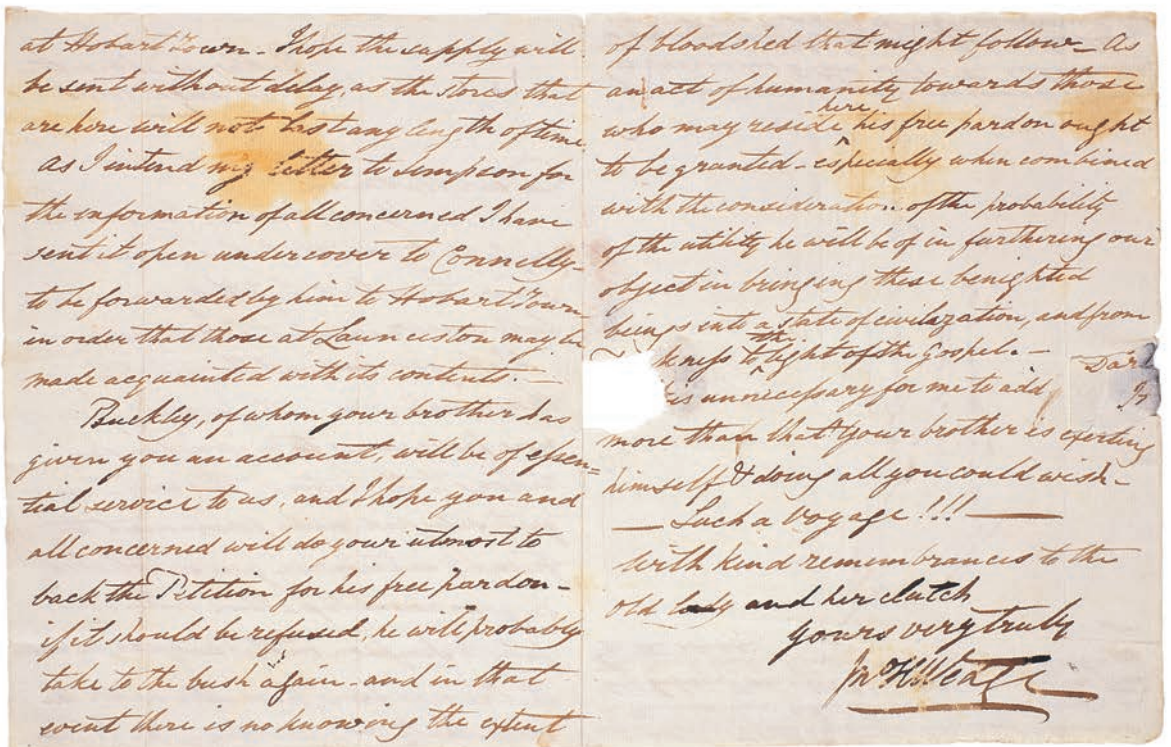 at Hobart Town - I hope the supply will
be sent without delay, as the stores that
are here will not last any length of time
As I intend my letter to Simpson for
the information of all concerned I have
sent it open under cover to Connolly -
to be forwarded by him to Hobart Town
in order that those at Launceston may be
made acquainted with its contents. —
Buckley, of whom your brother has
given you an account, will be of essen=
tial service to us, and I hope you and
all concerned will do your utmost to
back the Petition for his free pardon -
if it should be refused, he will probably
take to the bush again - and in that
event there is no knowing the extent
of bloodshed that might follow - As
an act of humanity towards those
who may reside here his free pardon ought
to be granted - especially when combined
with the consideration of the probability
of the utility he will be of in furthering our
object in bringing these benighted
beings into a state of civilization, and from
kness to the light of the Gospel. - Dar
is unnecessary for me to add
more than that your brother is exerting
himself & doing all you could wish -
— Such a voyage !!! —
With kind remembrances to the
old lady and her clutch
yours very truly
Jno H Wedge